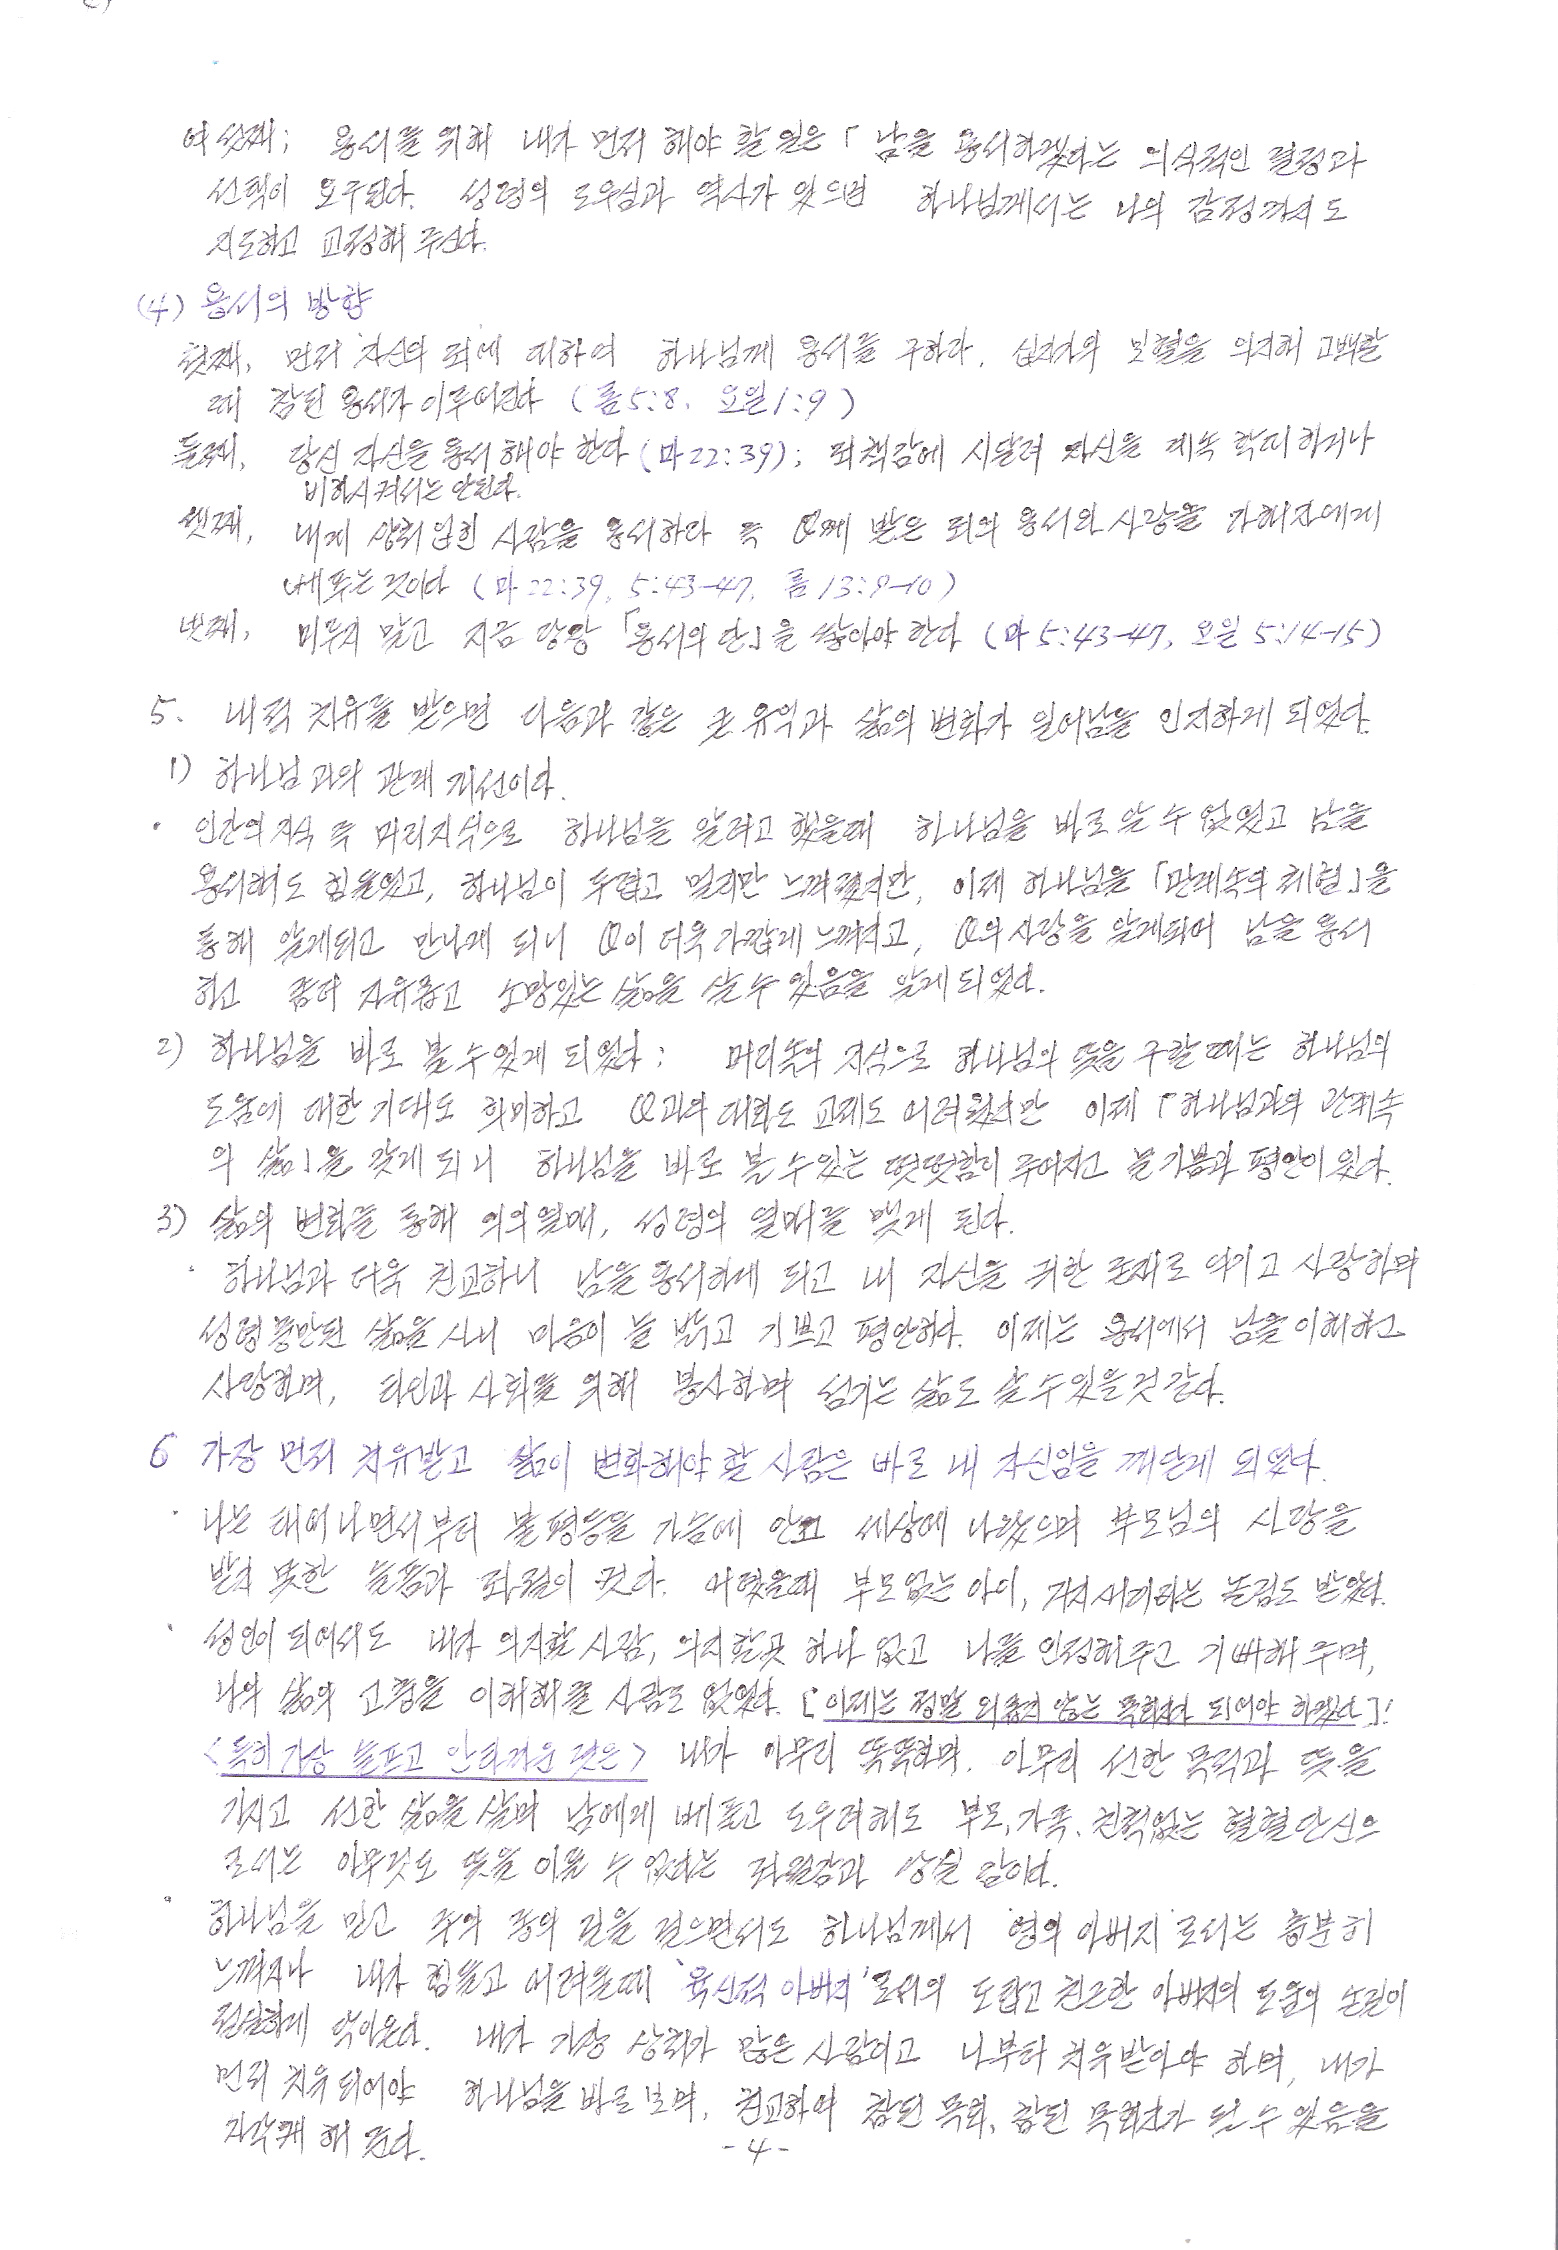 여섯째; 용서를 위해 내가 먼저 해야 할 일은「남을 용서하겠다는 의식적인 결정과
선택이 요구된다. 성령의 도우심과 역사가 있으면 하나님께서는 나의 감정까지도
지도하고 교정해 주신다.
(4) 용서의 방향
첫째, 먼저 자신의 죄에 대하여 하나님께 용서를 구하라. 십자가의 보혈을 의지해 고백할
때 참된 용서가 이루어진다 (롬5:8, 요일1:9)
둘째, 당신 자신을 용서해야 한다 (마22:39); 죄책감에 시달려 자신을 계속 학대하거나
비하시켜서는 안된다.
셋째, 내게 상처입힌 사람을 용서하라 즉 께 받은 죄의 용서와 사랑을 가해자에게
베푸는 것이다 (마22:39, 5:43-47, 롬13:9-10)
넷째, 미루지 말고 지금 당장「용서의 단」을 쌓아야 한다 (마5:43-47, 요일5:14-15)
5. 내적 치유를 받으면 다음과 같은 큰 유익과 삶의 변화가 일어남을 인지하게 되었다.
1) 하나님과의 관계 개선이다.
· 인간의 지식 즉 머리지식으로 하나님을 알려고 했을때 하나님을 바로 알 수 없었고 남을
용서해도 힘들었고, 하나님이 두렵고 멀리만 느껴졌지만, 이제 하나님을「관계속의 체험」을
통해 알게되고 만나게 되니 이 더욱 가깝게 느껴지고, 의 사랑을 알게되어 남을 용서
하고 좀더 자유롭고 소망있는 삶을 살 수 있음을 알게 되었다.
2) 하나님을 바로 볼 수 있게 되었다; 머리속의 지식으로 하나님의 뜻을 구할 때는 하나님의
도움에 대한 기대도 희미하고 과의 대화도 교제도 어려웠지만 이제「하나님과의 관계속
의 삶」을 갖게 되니 하나님을 바로 볼 수 있는 떳떳함이 주어지고 늘 기쁨과 평안이 있다.
3) 삶의 변화를 통해 의의 열매, 성령의 열매를 맺게 된다.
· 하나님과 더욱 친교하니 남을 용서하게 되고 내 자신을 귀한 존재로 여기고 사랑하며
성령충만된 삶을 사니 마음이 늘 밝고 기쁘고 평안하다. 이제는 용서에서 남을 이해하고
사랑하며, 타인과 사회를 위해 봉사하며 섬기는 삶도 살 수 있을 것 같다.
6 가장 먼저 치유받고 삶이 변화해야 할 사람은 바로 내 자신임을 깨닫게 되었다.
· 나는 태어나면서부터 불평등을 가슴에 안고 세상에 나왔으며 부모님의 사랑을
받지 못한 슬픔과 좌절이 컸다. 어렸을때 부모없는 아이, 거지새끼라는 놀림도 받았다.
· 성인이 되어서도 내가 의지할 사람, 의지할곳 하나 없고 나를 인정해주고 기뻐해 주며,
나의 삶의 고통을 이해해줄 사람도 없었다. [이제는 정말 외롭지 않는 목회자가 되어야 하겠다]!
<특히 가장 슬프고 안타까운 것은> 내가 아무리 똑똑하며, 아무리 선한 목적과 뜻을
가지고 선한 삶을 살며 남에게 베풀고 도우려해도 부모, 가족, 친척없는 혈혈단신으
로서는 아무것도 뜻을 이룰 수 없다는 좌절감과 상실감이다.
· 하나님을 믿고 주의 종의 길을 걸으면서도 하나님께서 '영의 아버지'로서는 충분히
느껴지나 내가 힘들고 어려울때 '육신적 아버지'로서의 도탑고 친근한 아버지의 도움의 손길이
절실하게 와닿는다. 내가 가장 상처가 많은 사람이고 나부터 치유받아야 하며, 내가
먼저 치유되어야 하나님을 바로 보며, 친교하여 참된 목회, 참된 목회자가 될 수 있음을
자각케 해 준다.
-4-